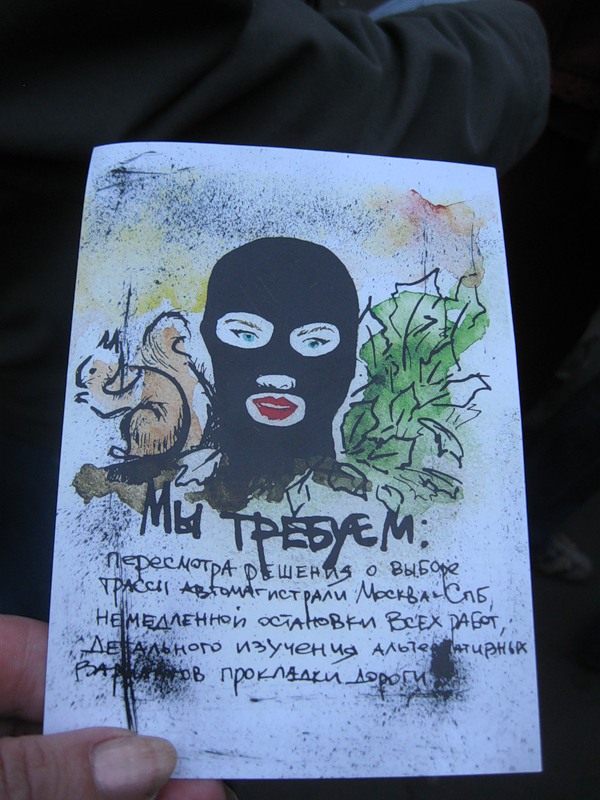 Мы ТРЕБУЕМ:
пересмотра решения о выборе
трассы автомагистрали Москва-Спб,
немедленной остановки всех работ,
детального изучения альтернативных
вариантов прокладки дороги.